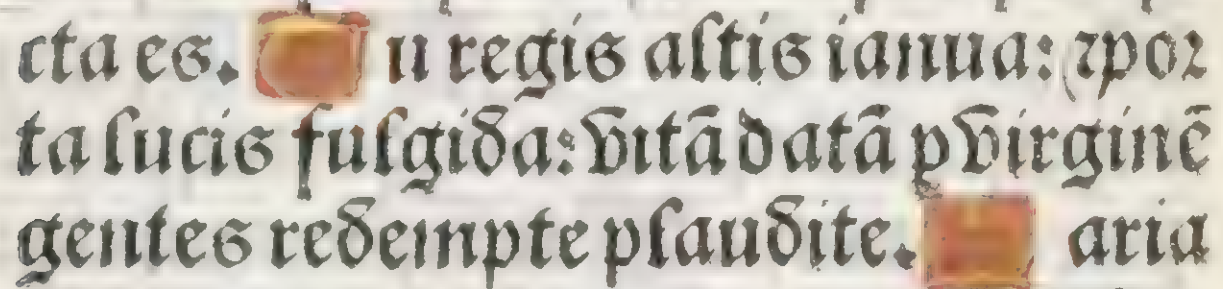 cta es. u regis altis ianua: ⁊ por
ta lucis fulgida: vitā datā ꝑ virginē
gentes redempte plaudite. aria